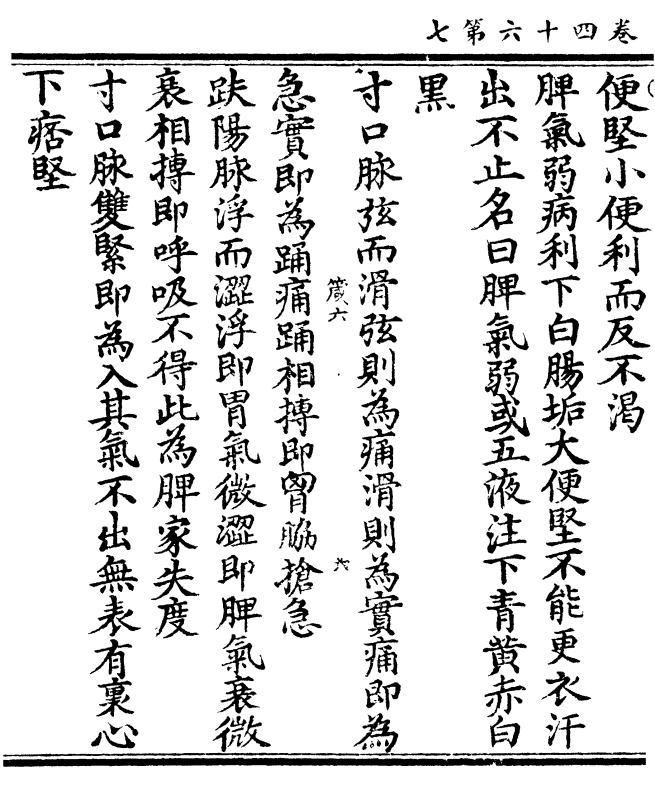 卷四十六第七
便堅小便利而反不渴
脾氣弱病利下白腸垢大便堅不能更衣汗
出不止名曰脾氣弱或五液注下青黃赤白
黑
寸口脉弦而滑弦則為痛滑則為實痛即為
箴六
六
急實即為踊痛踊相摶即胷脇搶急
趺陽脉浮而澀浮即胃氣微澀即脾氣衰微
衰相摶即呼吸不得此為脾家失度
寸口脉雙緊即為入其氣不出無表有裏心
下痞堅